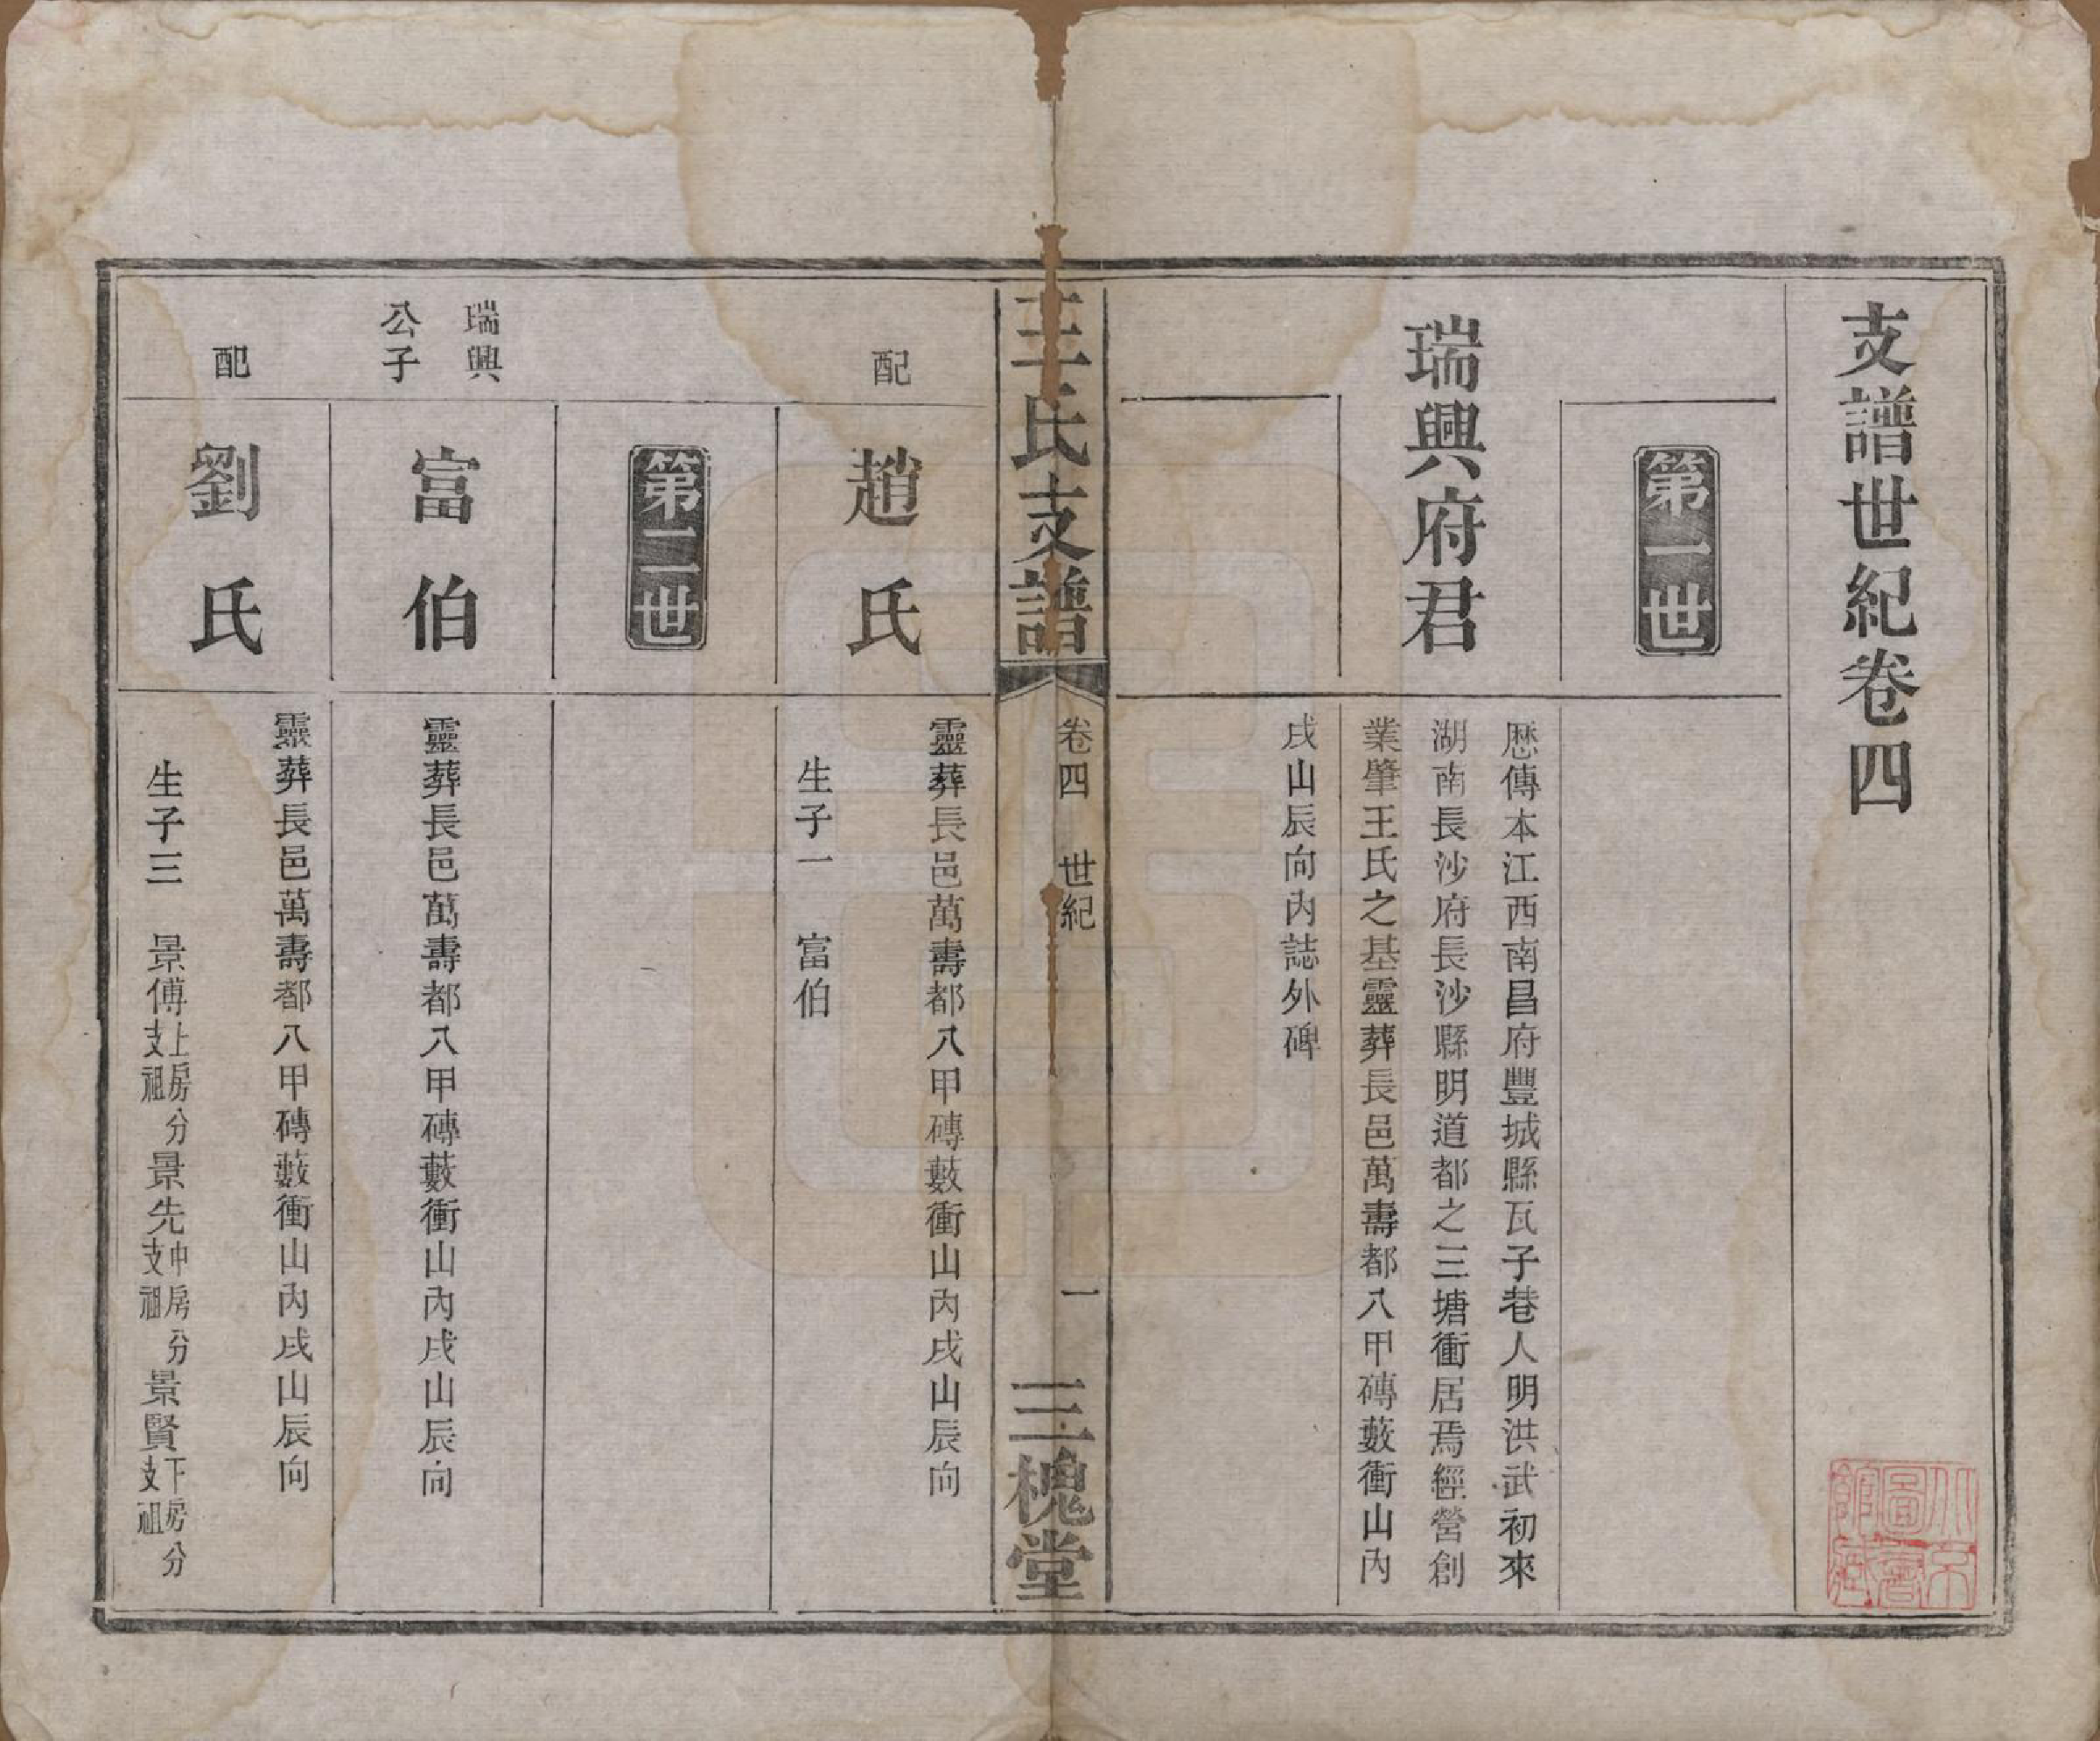 支譜世紀卷四
第一世
瑞興府君
歷傳本江西南昌府豐城縣瓦子巷人明洪武初來
湖南長沙府長沙縣明道都之三塘衝居焉經營創
業肇王氏之基靈葬長邑萬壽都八甲磚藪衝山內
戌山辰向內誌外碑
王氏支譜
卷四 世紀
一
三槐堂
配
趙氏
靈葬長邑萬壽都八甲磚藪衝山內戌山辰向
生子一 富伯
第二世
瑞興
公子
富伯
靈葬長邑萬壽都八甲磚藪衝山內戌山辰向
配
劉氏
靈葬長邑萬壽都八甲磚藪衝山內戌山辰向
生子三 景傅上房分支祖景先中房分支祖景賢下房分支祖